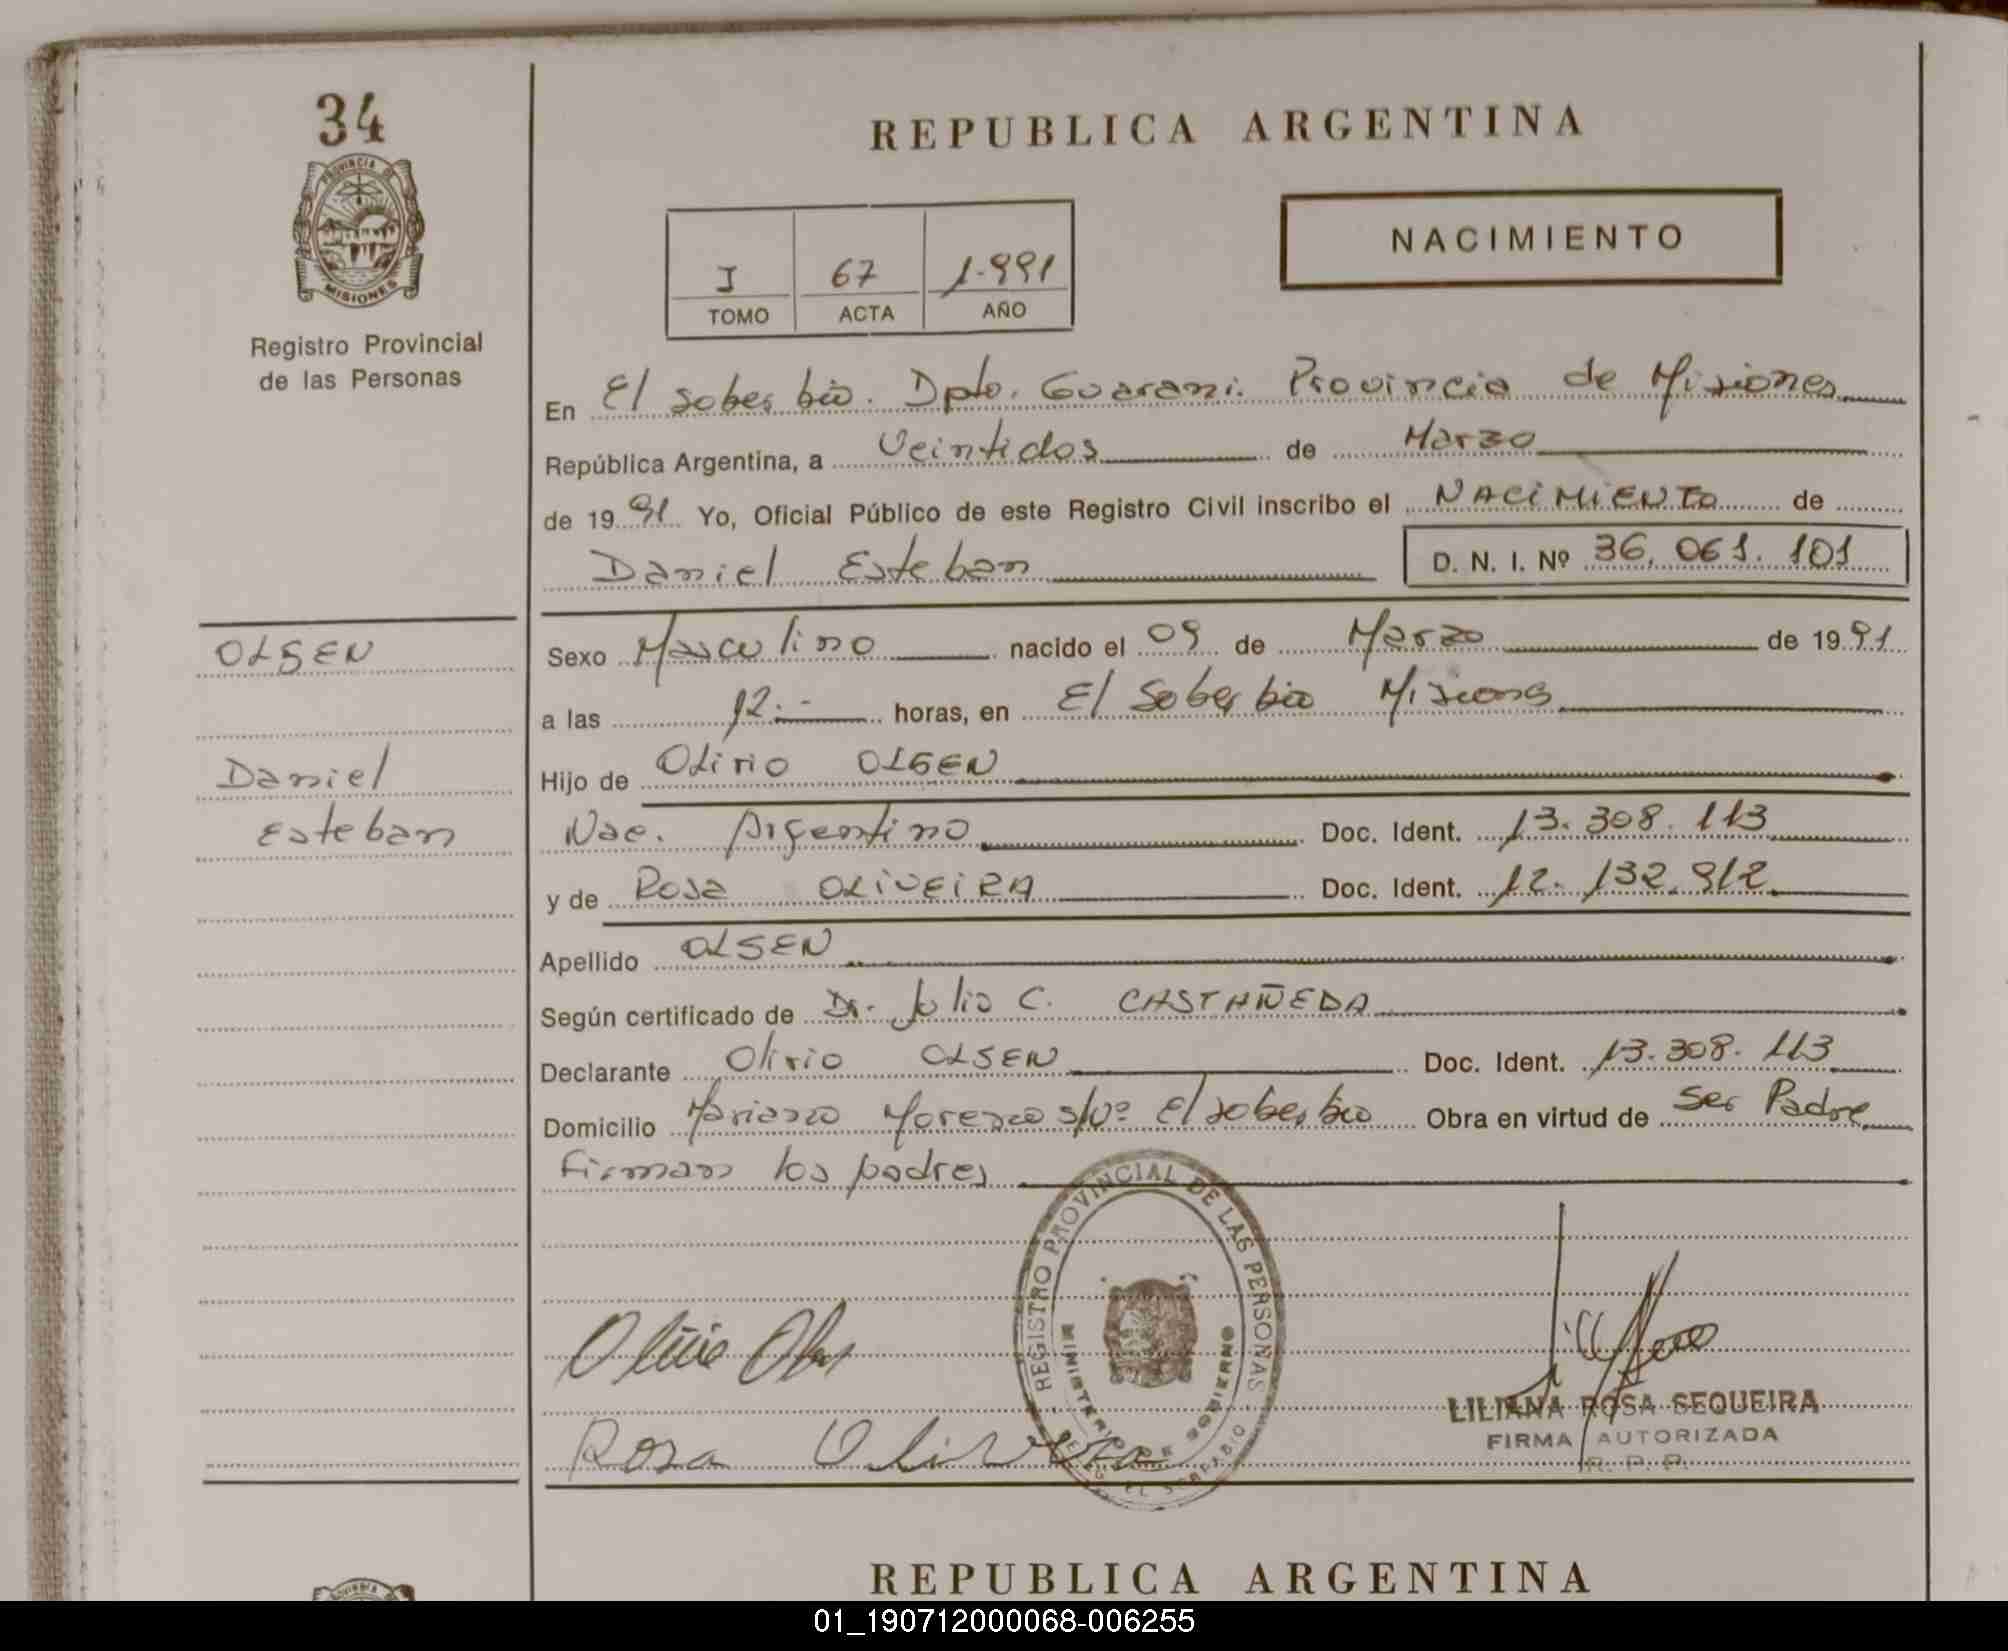 34
PROVINCIA DE
MISIONES
Registro Provincial
de las Personas
REPUBLICA ARGENTINA
NACIMIENTO
I 67 1.991
TOMO ACTA AÑO
En El soberbio. Dpto. Guarani. Provincia de Misiones
República Argentina, a Veintidos de Marzo
de 19 91 Yo, Oficial Público de este Registro Civil inscribo el NACIMIENTO de
Daniel Esteban D. N. I. Nº 36.061.101
OLSEN
Daniel
Esteban
Sexo Masculino nacido el 09 de Marzo de 19 91
a las 12.- horas, en El Soberbio Misiones
Hijo de Olirio OLSEN
Nac. Argentino Doc. Ident. 13.308.113
y de Rosa OLIVEIRA Doc. Ident. 12.132.912
Apellido OLSEN
Según certificado de Dr. Julio C. CASTAÑEDA
Declarante Olirio OLSEN Doc. Ident. 13.308.113
Domicilio Mariano Moreno s/nº El soberbio Obra en virtud de Ser Padre
Firman los padres
REGISTRO PROVINCIAL DE LAS PERSONAS
MINISTERIO DE GOBIERNO
EL SOBERBIO
Rosa Oliveira
LILIANA ROSA SEQUEIRA
FIRMA AUTORIZADA
R. P. P.
REPUBLICA ARGENTINA
01_190712000068-006255